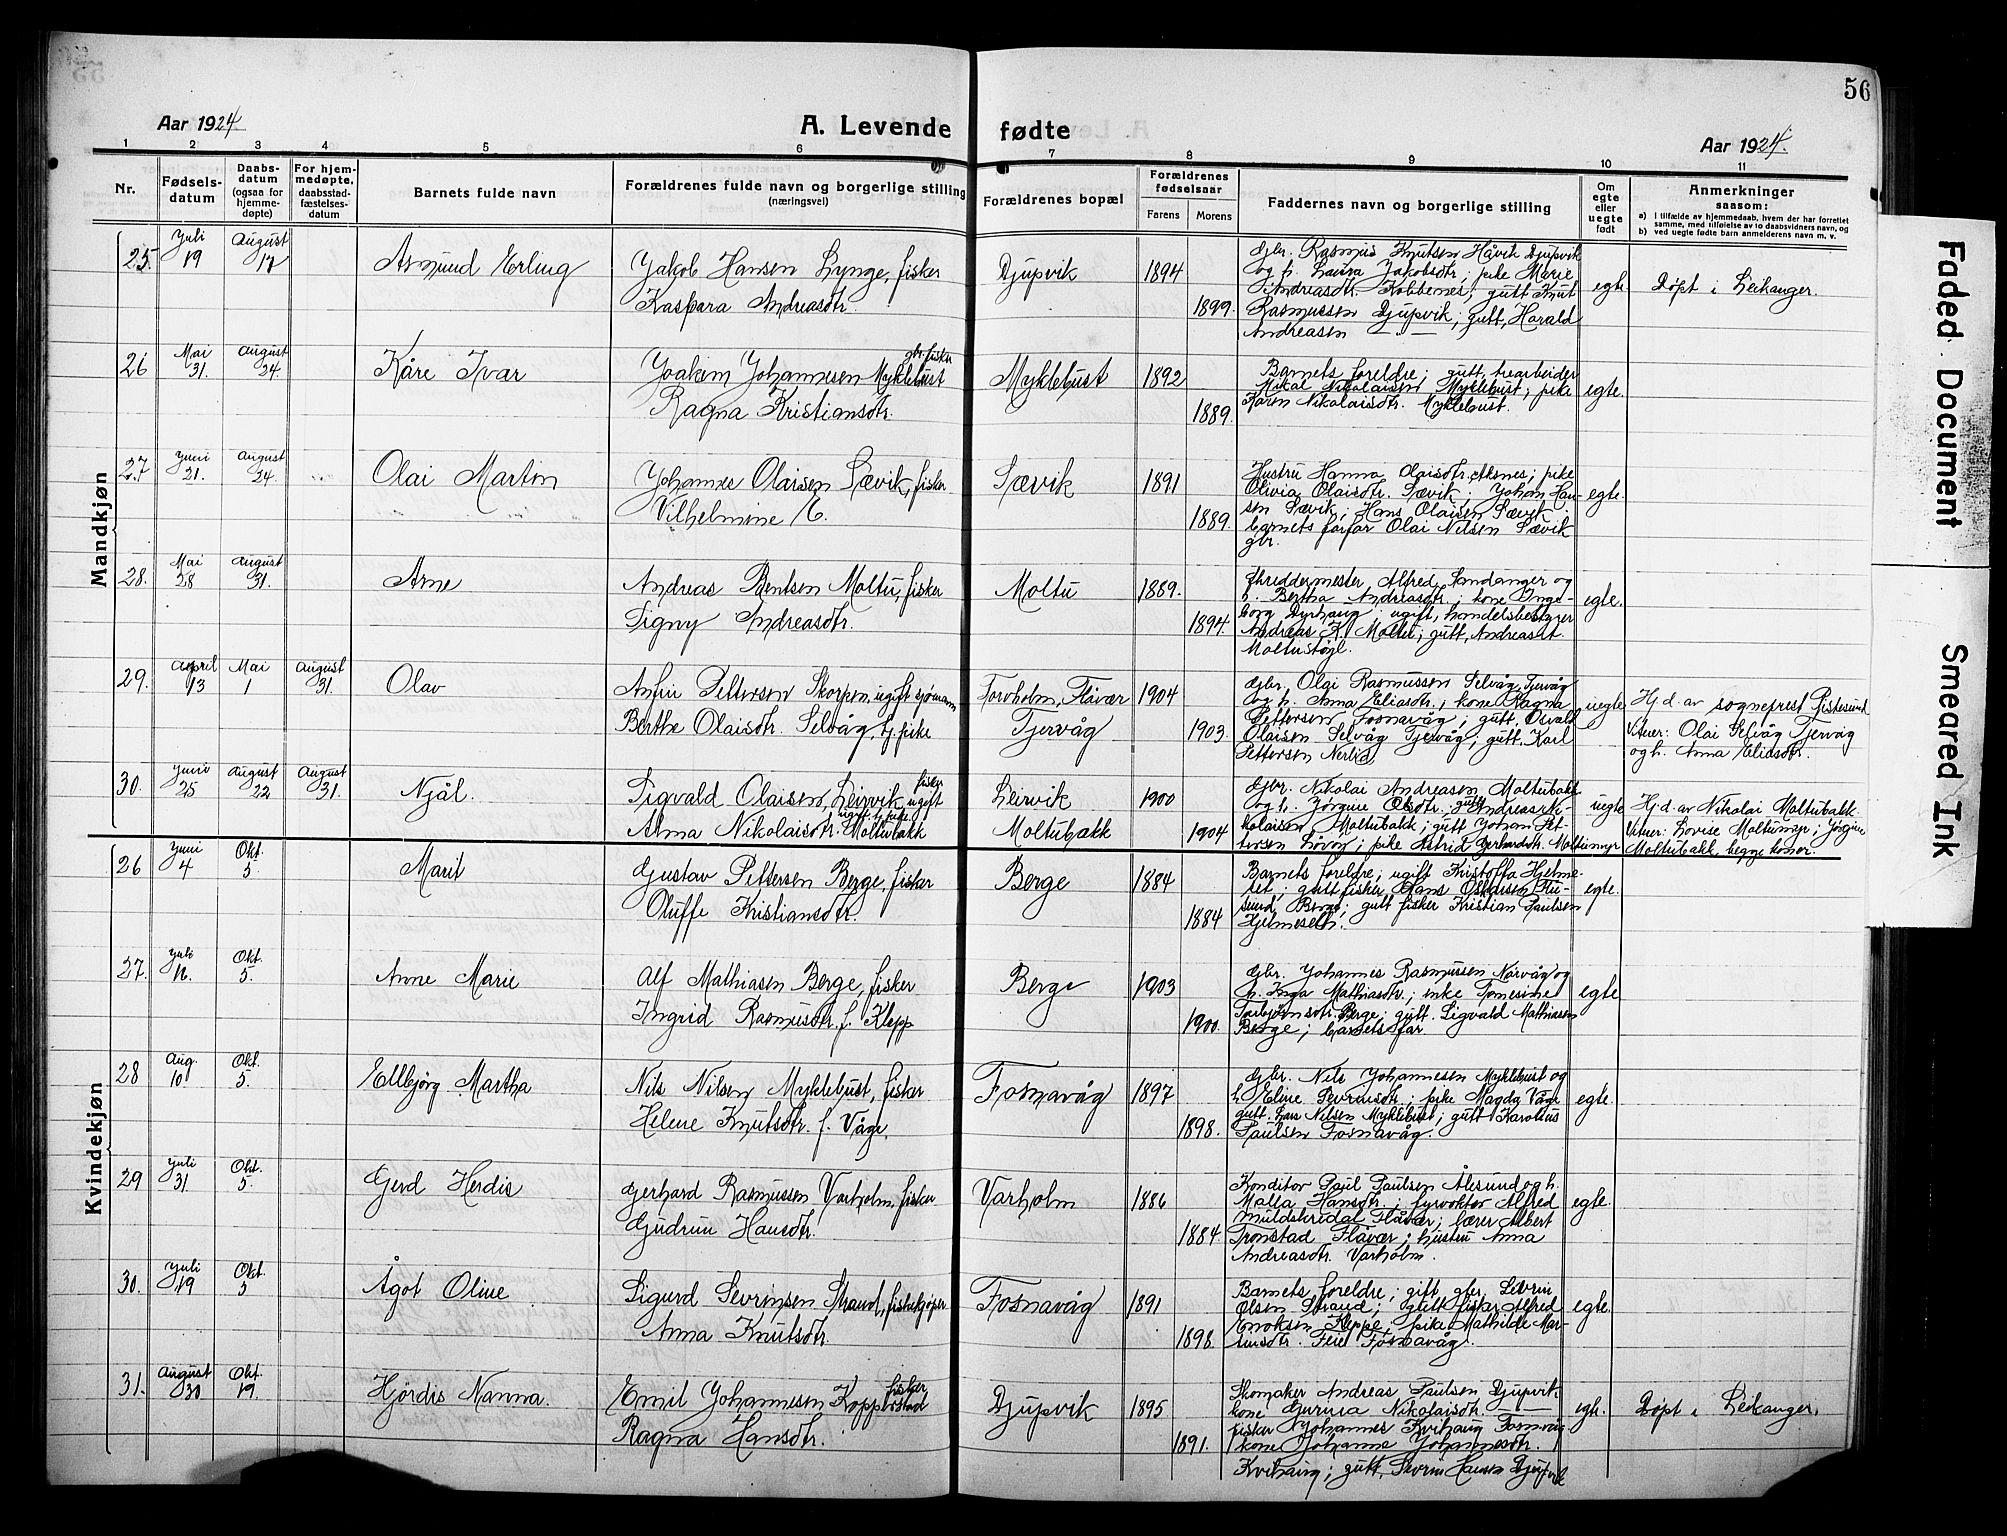 56
Aar 1924. A. Levende fødte Aar 1924.
1 2 3 4 5 6 7 8 9 10 11
Nr. Fødsels-datum Daabs-datum (ogsaa for hjemme-døpte) For hjem-medøpte, daabsstad-fæstelses-datum Barnets fulde navn Forældrenes fulde navn og borgerlige stilling (næringsvei) Forældrenes bopæl Forældrenes fødselsaar Farens Morens Faddernes navn og borgerlige stilling Om egte eller uegte født Anmerkninger saasom:
a) i tilfælde av hjemmedaab, hvem der har forrettet samme, med tilføielse av to daabsvidners navn, og
b) ved uegte fødte barn anmelderens navn m. v.
Mandkjøn
25. Juli 19 August 17 Asmund Erling Jakob Hansen Lynge, fisker Djupvik 1894 Gbr. Rasmus Knutsen Håvik Djupvik
og h. Laura Jakobsdtr; pike Marie
Kaspara Andreasdtr. 1899. Andreasdtr. Kobbenes; gutt Knut egte. Døpt i Leikanger.
Rasmussen Djupvik; gutt, Harald
Andreasen — —
26 Mai 31. August 24. Kåre Ivar Joakim Johannesen Myklebust gbr. fisker Myklebust 1892 Barnets foreldre; gutt, trearbeider
Mikal Nikolaisen Myklebust; pike egte.
Ragna Kristiansdtr. 1889. Karen Nikolaisdtr. Myklebust.
27 Juni 21. August 24. Olai Martin Johannes Olaisen Sævik, fisker Sævik 1891 Hustru Hanna Olaisdtr. Aksnes; pike
Olivia Olaisdtr. Sævik; Johan Han- egte.
Vilhelmine 1889. sen Sævik; Hans Olaisen Sævik
barnets farfar Olai Nilsen Sævik
gbr.
28. Mai 28 August 31. Arne Andreas Bentsen Moltu, fisker Moltu 1889. Skreddermester Alfred Sandanger og
h. Bertha Andreasdtr.; kone Inge- egte.
Signy Andreasdtr. 1894. borg Dyrhaug; ugift, handelsbestyrer
Andreas K. Moltu; gutt, Andreas
29. April 13 Mai 1 August 31. Olav Anfin Pettersen Skorpen, ugift sjømann Torvholm, Flåvær 1904 Gbr. Olai Rasmussen Selvåg, Tjervåg
og h. Anna Eliasdtr; kone Ragna uegte Hj. d. av sogneprest
Berthe Olaisdtr. Selvåg, tj. pike Tjervåg 1903 Pettersen, Fosnavåg; gutt, Osvald Vitner: Olai Selvåg Tjervåg
Olaisen Selvåg Tjervåg; gutt, Karl og h. Anna Eliasdtr.
Pettersen
30. Juni 25 August 22 August 31. Njål. Sigvald Olaisen, Leirvik fisker ugift Leirvik 1900 Gbr. Nikolai Andreasen Moltubakk
og h. Jørgine Olsdtr. gutt Andreas Ni- uegte Hj. d. av Nikolai Moltubakk
Alma Nikolaisdtr. Moltubakk ugift tj. pike Moltubakk 1904 kolaisen Moltubakk; gutt Johan Pet- Vitner: Lovise Moltumyr; Jørgine
tersen Lovøy; pike Astrid Gerhardsdtr. Moltumyr Moltubakk, begge koner.
Kvindekjøn
26 Juni 4 Okt. 5. Marit Gustav Pettersen Berge, fisker Berge 1884 Barnets foreldre; ugift Kristoffa Hjelme-
set; gutt fisker Hans egte.
Oluffe Kristiansdtr. 1884 Berge; gutt fisker Kristian Paulsen
Hjelmeseth.
27. Juli 16. Okt. 5. Anne Marie Alf Mathiasen Berge, fisker Berge 1903 Gbr. Johannes Rasmussen Nærvåg og
h. Inga Mathiasdtr.; enke Tomesine egte
Ingrid Rasmusdtr. f. Klepp 1900 Torbjørnsdtr. Berge; gutt. Sigvald Mathiasen
Berge; barnets far.
28 Aug. 10 Okt. 5. Ellbjørg Martha Nils Nilsen Myklebust, fisker Fosnavåg 1897 Gbr. Nils Johannesen Myklebust og
h. Eline Sevrinsdtr.; pike Magda Våge egte.
Helene Knutsdtr. f. Våge. 1898. gutt. Lars Nilsen Myklebust; gutt Karolius
Paulsen Fosnavåg.
29 Juli 31. Okt. 5. Gerd Herdis Gerhard Rasmussen Varholm, fisker Varholm 1886 Konditor Paul Paulsen Ålesund og h.
Malla Hansdtr.; fyrvokter Alfred egte.
Gudrun Hansdtr. 1884. Muldskredal Flåvær; lærer Albert
Tronstad Flåvær; hustru Anna
Andreasdtr. Varholm.
30. Juli 19 Okt. 5 Ågot Oline Sigurd Sevrinsen Strand, fiskekjøper Fosnavåg 1891 Barnets foreldre; gift gbr. Sevrin
Olsen Strand; gutt fisker Alfred egte
Anna Knutsdtr. 1898. Enoksen Kleppe; pike Mathilde Mar-
tinsdtr. Feie Fosnavåg.
31. August 30 Okt. 19. Hjördis Nanna. Emil Johannesen Kopperstad fisker Djupvik 1895 Skomaker Andreas Paulsen Djupvik
kone Gurina Nikolaisdtr. — — egte. Døpt i Leikanger.
Ragna Hansdtr. 1891. fisker Johannes Kvihaug Fosnvåg
kone Johanne Johannesdtr.
Kvihaug; gutt, Severin Hansen Djupvik
Faded Document
Smeared Ink